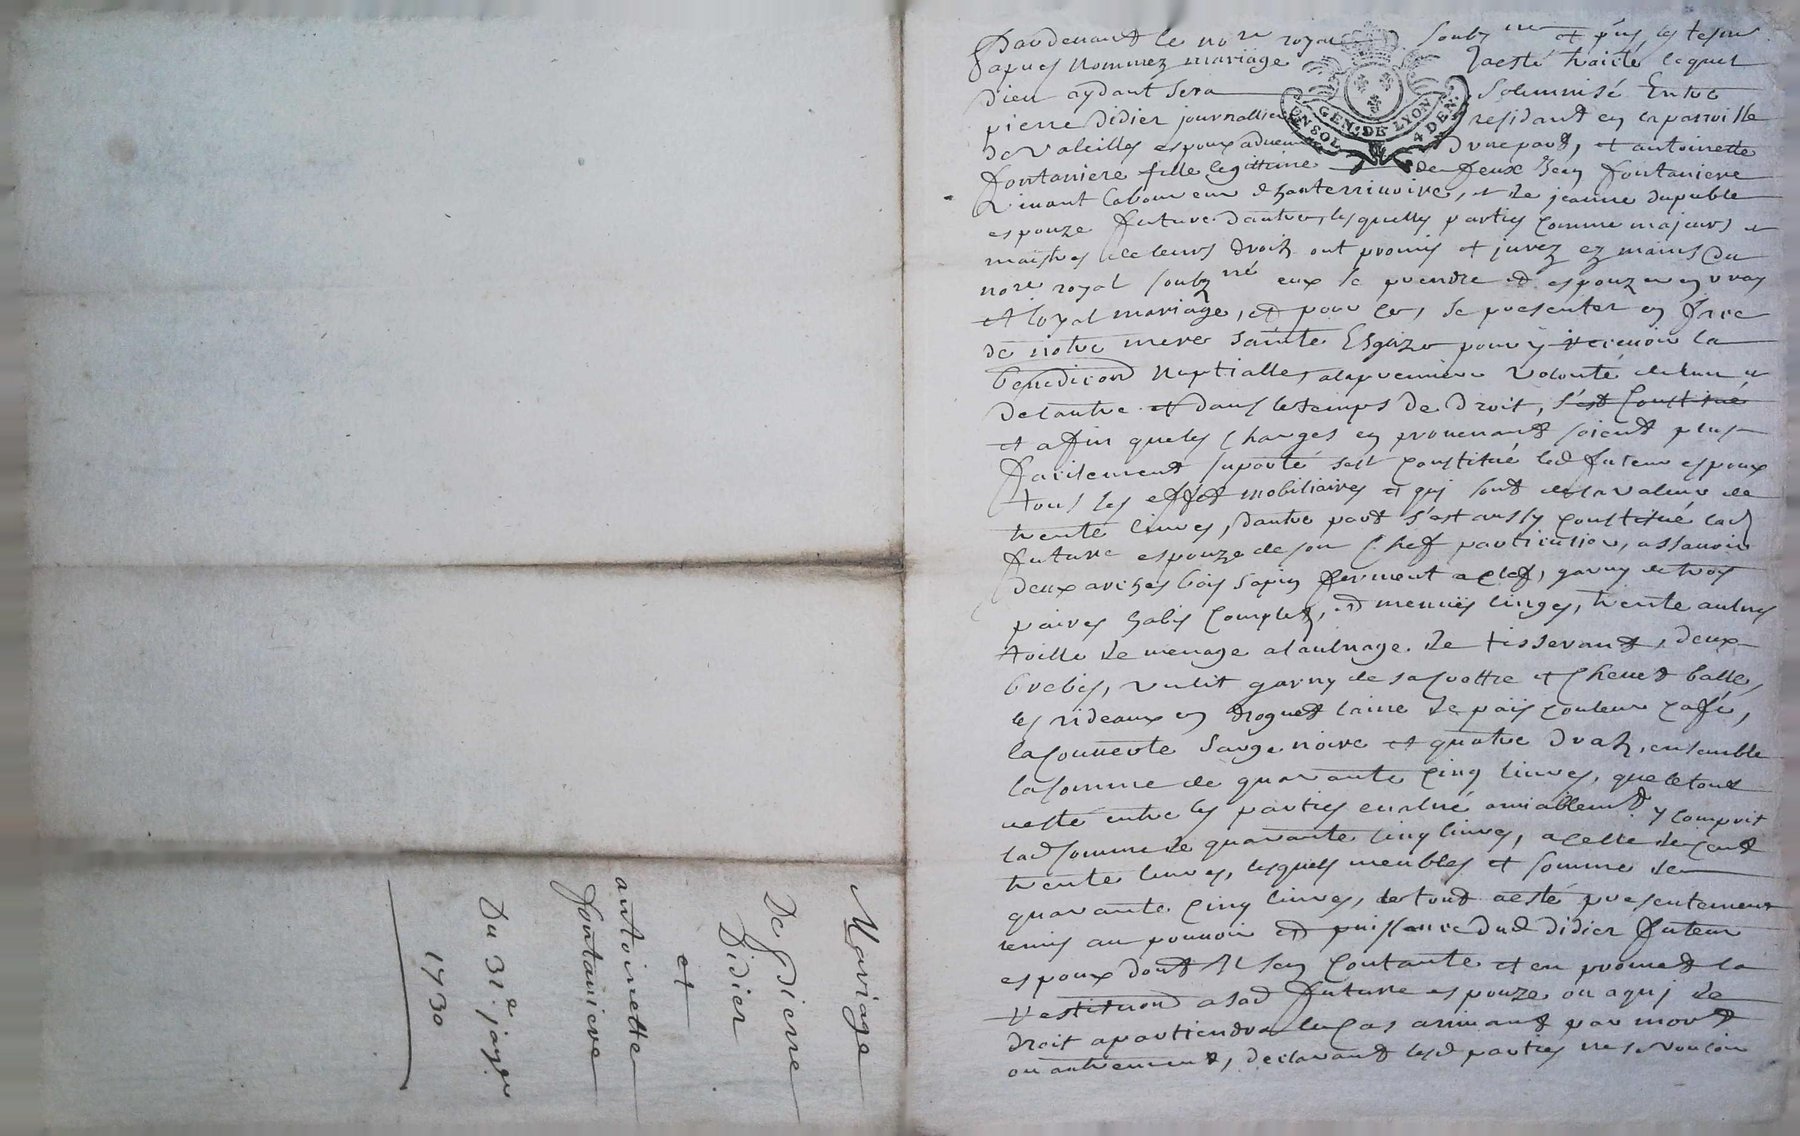 Mariage
De Pierre
Didier
et
antoinette
fontaniere
Du 31e janver
1730
Pardevant le nore royal soubz né et pñs les tesms
apres nommez mariage a esté traicté lequel
dieu aydant sera solemnisé Entre
pierre Didier journallier residant en la parroisse
de Valeilles espoux advenir d'une part, et antoinette
fontaniere fille legittime de feux Jean fontaniere
vivant laboureur et de jeanne dupuble
espouze future d'autre, lesquelles parties comme majeurs et
maistres de leurs droitz ont promis et jurez ez mains du
nore royal soubz né eux se prendre et espouzer en vray
et loyal mariage, et pour ce, se presenter en face
de notre mere sainte Esglize pour y recevoir la
benediction nuptialle, a la premiere volonté de l'un et
de l'autre et dans le temps de droit, s'est Constitué
et affin que les charges en provenant soient plus
facilement suporté sest constitué led futeur espoux
tous ses effet mobiliaires et qui sont de la valeur de
trente livres, d'autre part s'est aussy constitué lad
future espouze de son chef particulier, assavoir
deux arches bois sapin ferment a clef, garny de trois
paires habis complet, et menues linges, trente aulnes
toille de menage a laulnage de tisserant, deux
brebis, un lit garny de sa coettre et chevet balle,
les rideaux en droguet laine de païs couleur caffé,
la couverte sarge noire et quatre draz, ensemble
la somme de quarante cinq livres, que le tout
a esté entre les parties evalué amiablemt y compris
lad somme de quarante cinq livres, a celle de cent
trente livres, lesquels meubles et somme de
quarante cinq livres, le tout a esté presentement
remis au pouvoir et puissance dud didier futeur
espoux dont il s'en contante et en promet la
restituon a sad future espouze ou a qui de
droit apartiendra le cas arrivant par mort
ou autrement, declarant lesd parties ne se vouloir
GEN. DE LYON
EN SOL 4 DEN.